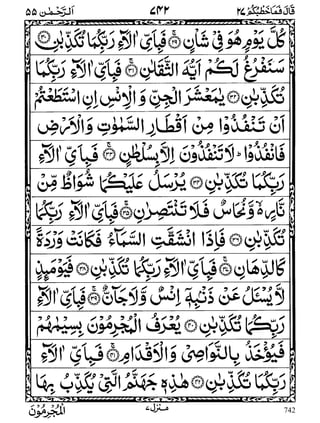 قَالَ فَمَا خَطْبُكُمْ ٢٧ ٧٤٢ اَلرَّحْمٰن ٥٥
كُلَّ يَوْمٍ هُوَ فِيْ شَاْنٍ ﴿٢٩﴾ فَبِاَيِّ اٰلَآءِ رَبِّكُمَا تُكَذِّبٰنِ ﴿٣٠﴾
سَنَفْرُغُ لَكُمْ اَيُّهَ الثَّقَلٰنِ ﴿٣١﴾ فَبِاَيِّ اٰلَآءِ رَبِّكُمَا
تُكَذِّبٰنِ ﴿٣٢﴾ يٰمَعْشَرَ الْجِنِّ وَ الْاِنْسِ اِنِ اسْتَطَعْتُمْ
اَنْ تَنْفُذُوْا مِنْ اَقْطَارِ السَّمٰوٰتِ وَالْاَرْضِ
فَانْفُذُوْا ؕ لَا تَنْفُذُوْنَ اِلَّا بِسُلْطٰنٍ ﴿٣٣﴾ فَبِاَيِّ اٰلَآءِ
رَبِّكُمَا تُكَذِّبٰنِ ﴿٣٤﴾ يُرْسَلُ عَلَيْكُمَا شُوَاظٌ مِّنْ
نَّارٍ ۙ وَّ نُحَاسٌ فَلَا تَنْتَصِرٰنِ ﴿٣٥﴾ فَبِاَيِّ اٰلَآءِ رَبِّكُمَا
تُكَذِّبٰنِ ﴿٣٦﴾ فَاِذَا انْشَقَّتِ السَّمَآءُ فَكَانَتْ وَرْدَةً
كَالدِّهَانِ ﴿٣٧﴾ فَبِاَيِّ اٰلَآءِ رَبِّكُمَا تُكَذِّبٰنِ ﴿٣٨﴾ فَيَوْمَئِذٍ
لَّا يُسْئَلُ عَنْ ذَنْۢبِهٖۤ اِنْسٌ وَّلَا جَآنٌّ ﴿٣٩﴾ فَبِاَيِّ اٰلَآءِ
رَبِّكُمَا تُكَذِّبٰنِ ﴿٤٠﴾ يُعْرَفُ الْمُجْرِمُوْنَ بِسِيْمٰهُمْ
فَيُؤْخَذُ بِالنَّوَاصِيْ وَالْاَقْدَامِ ﴿٤١﴾ فَبِاَيِّ اٰلَآءِ
رَبِّكُمَا تُكَذِّبٰنِ ﴿٤٢﴾ هٰذِهٖ جَهَنَّمُ الَّتِيْ يُكَذِّبُ بِهَا
742 منزل ٧ الْمُجْرِمُوْنَ